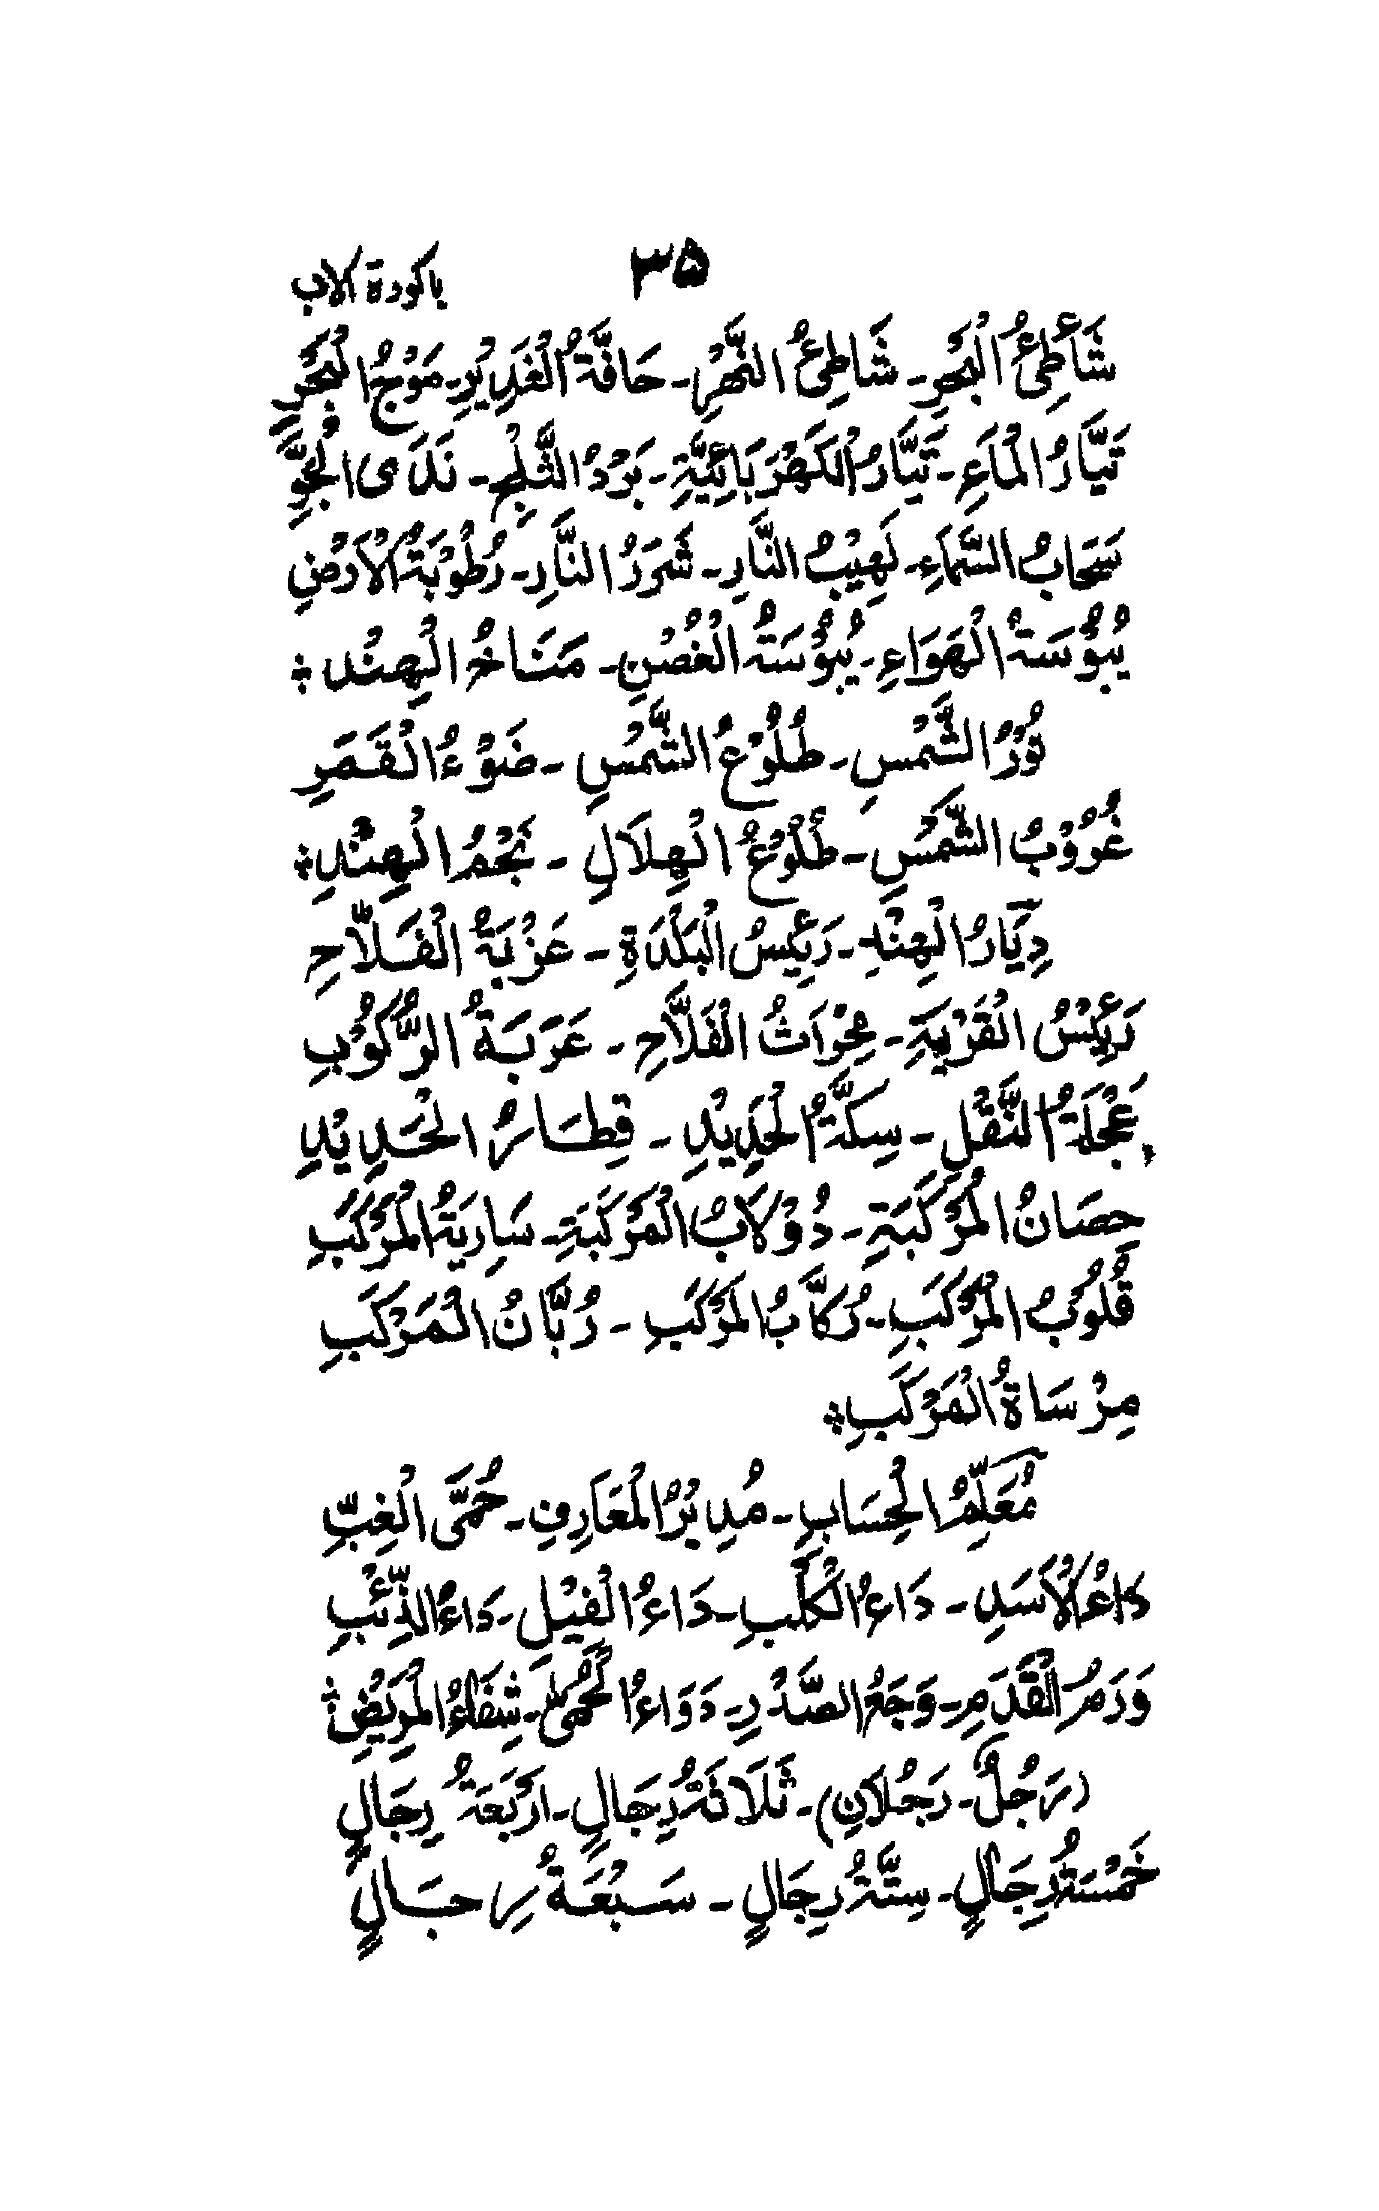 ۳۵ باکورة الادب
شَاطِئُ الْبَحْرِ۔ شَاطِئُ النَّهْرِ۔ حَافَّةُ الْغَدِيْرِ۔ مَوْجُ الْبَحْرِ
تَيَّارُ الْمَاءِ۔ تَيَّارُ الْكَهْرَبَائِيَّةِ۔ بَرْدُ الثَّلْجِ۔ نَدَى الْجَوِّ
سَحَابُ السَّمَاءِ۔ لَهِيْبُ النَّارِ۔ شَرَرُ النَّارِ۔ رُطُوْبَةُ الْاَرْضِ
يُبُوْسَةُ الْهَوَاءِ۔ يُبُوْسَةُ الْغُصْنِ۔ مَنَاخُ الْهِنْدِ ؞
نُوْرُ الشَّمْسِ۔ طُلُوْعُ الشَّمْسِ۔ ضَوْءُ الْقَمَرِ
غُرُوْبُ الشَّمْسِ۔ طُلُوْعُ الْهِلَالِ۔ نَجْمُ الْهِنْدِ ؞
دِيَارُ الْهِنْدِ۔ رَئِيْسُ الْبَلْدَةِ۔ عَزْبَةُ الْفَلَّاحِ
رَئِيْسُ الْقَرْيَةِ۔ مِحْرَاثُ الْفَلَّاحِ۔ عَرَبَةُ الرُّكُوْبِ
عَجْلَةُ النَّقْلِ۔ سِكَّةُ الْحَدِيْدِ۔ قِطَارُ الْحَدِيْدِ
حِصَانُ الْمَرْكَبَةِ۔ دُوْلَابُ الْمَرْكَبَةِ۔ سَارِيَةُ الْمَرْكَبِ
قُلُوْبُ الْمَرْكَبِ۔ رُكَّابُ الْمَرْكَبِ۔ رُبَّانُ الْمَرْكَبِ
مِرْسَاةُ الْمَرْكَبِ ؞
مُعَلِّمُ الْحِسَابِ۔ مُدِيْرُ الْمَعَارِفِ۔ حُمَّى الْغِبِّ
دَاءُ الْاَسَدِ۔ دَاءُ الْكَلْبِ۔ دَاءُ الْفِيْلِ۔ دَاءُ الذِّئْبِ
وَرَمُ الْقَدَمِ۔ وَجَعُ الصَّدْرِ۔ دَوَاءُ الْحُمّٰى۔ شِفَاءُ الْمَرِيْضِ ؞
(رَجُلٌ۔ رَجُلَانِ)۔ ثَلَاثَةُ رِجَالٍ۔ اَرْبَعَةُ رِجَالٍ
خَمْسَةُ رِجَالٍ۔ سِتَّةُ رِجَالٍ۔ سَبْعَةُ رِجَالٍ